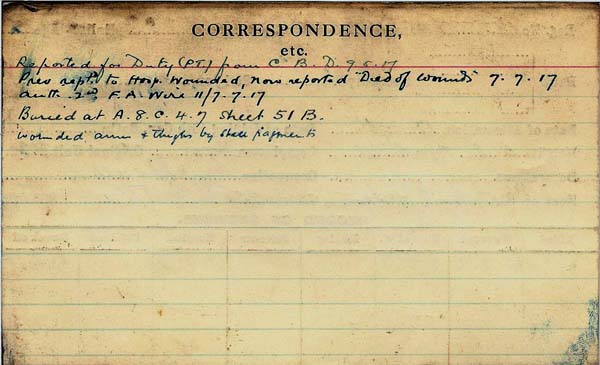 CORRESPONDENCE,
etc.
Reported for Duty (PT) from C B. D. 9 5 17
Prev rept'd to Hosp. Wounded, now reported "Died of Wounds" 7. 7. 17
auth. 2nd F. A. Wire 11/7.7.17
Buried at A. 8. C. 4. 7 Sheet 51 B.
wounded arms & thighs by shell fragments